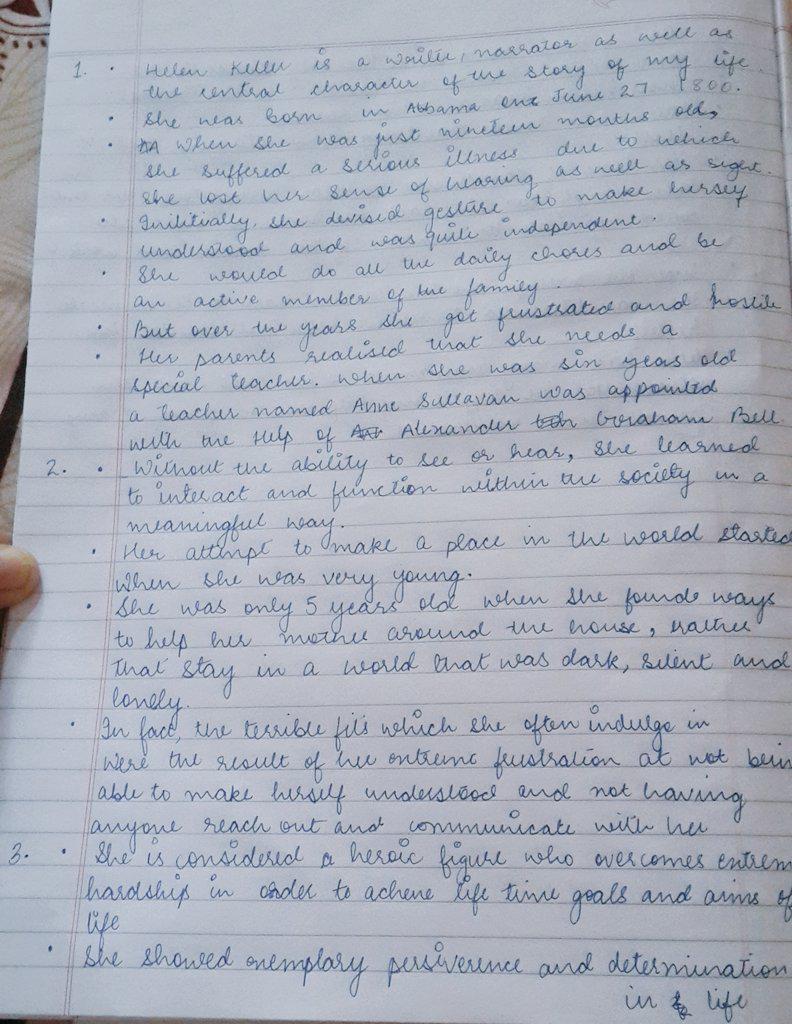 1. • Helen Keller is a writer, narrator as well as
the central character of the story of my life.
• She was born in Abbama on June 27 1800.
• When she was just nineteen months old,
she suffered a serious illness due to which
she lost her sense of hearing as well as sight.
• Initially, she devised gesture to make herself
understood and was quite independent.
• She would do all the daily chores and be
an active member of the family.
• But over the years she got frustrated and hostile
• Her parents realised that she needs a
special teacher. When she was six years old
a teacher named Anne Sullavan was appointed
with the help of Alexander Graham Bell
2. • Without the ability to see or hear, she learned
to interact and function within the society in a
meaningful way.
• Her attempt to make a place in the world started
when she was very young.
• She was only 5 years old when she founde ways
to help her mother around the house, rather
that stay in a world that was dark, silent and
lonely.
• In fact, the terrible fits which she often indulge in
were the result of her extreme frustration at not bein
able to make herself understood and not having
anyone reach out and communicate with her
3. • She is considered a heroic figure who overcomes extrem
hardship in order to achene life time goals and aims of
life
• She showed exemplary perseverence and determination
in life